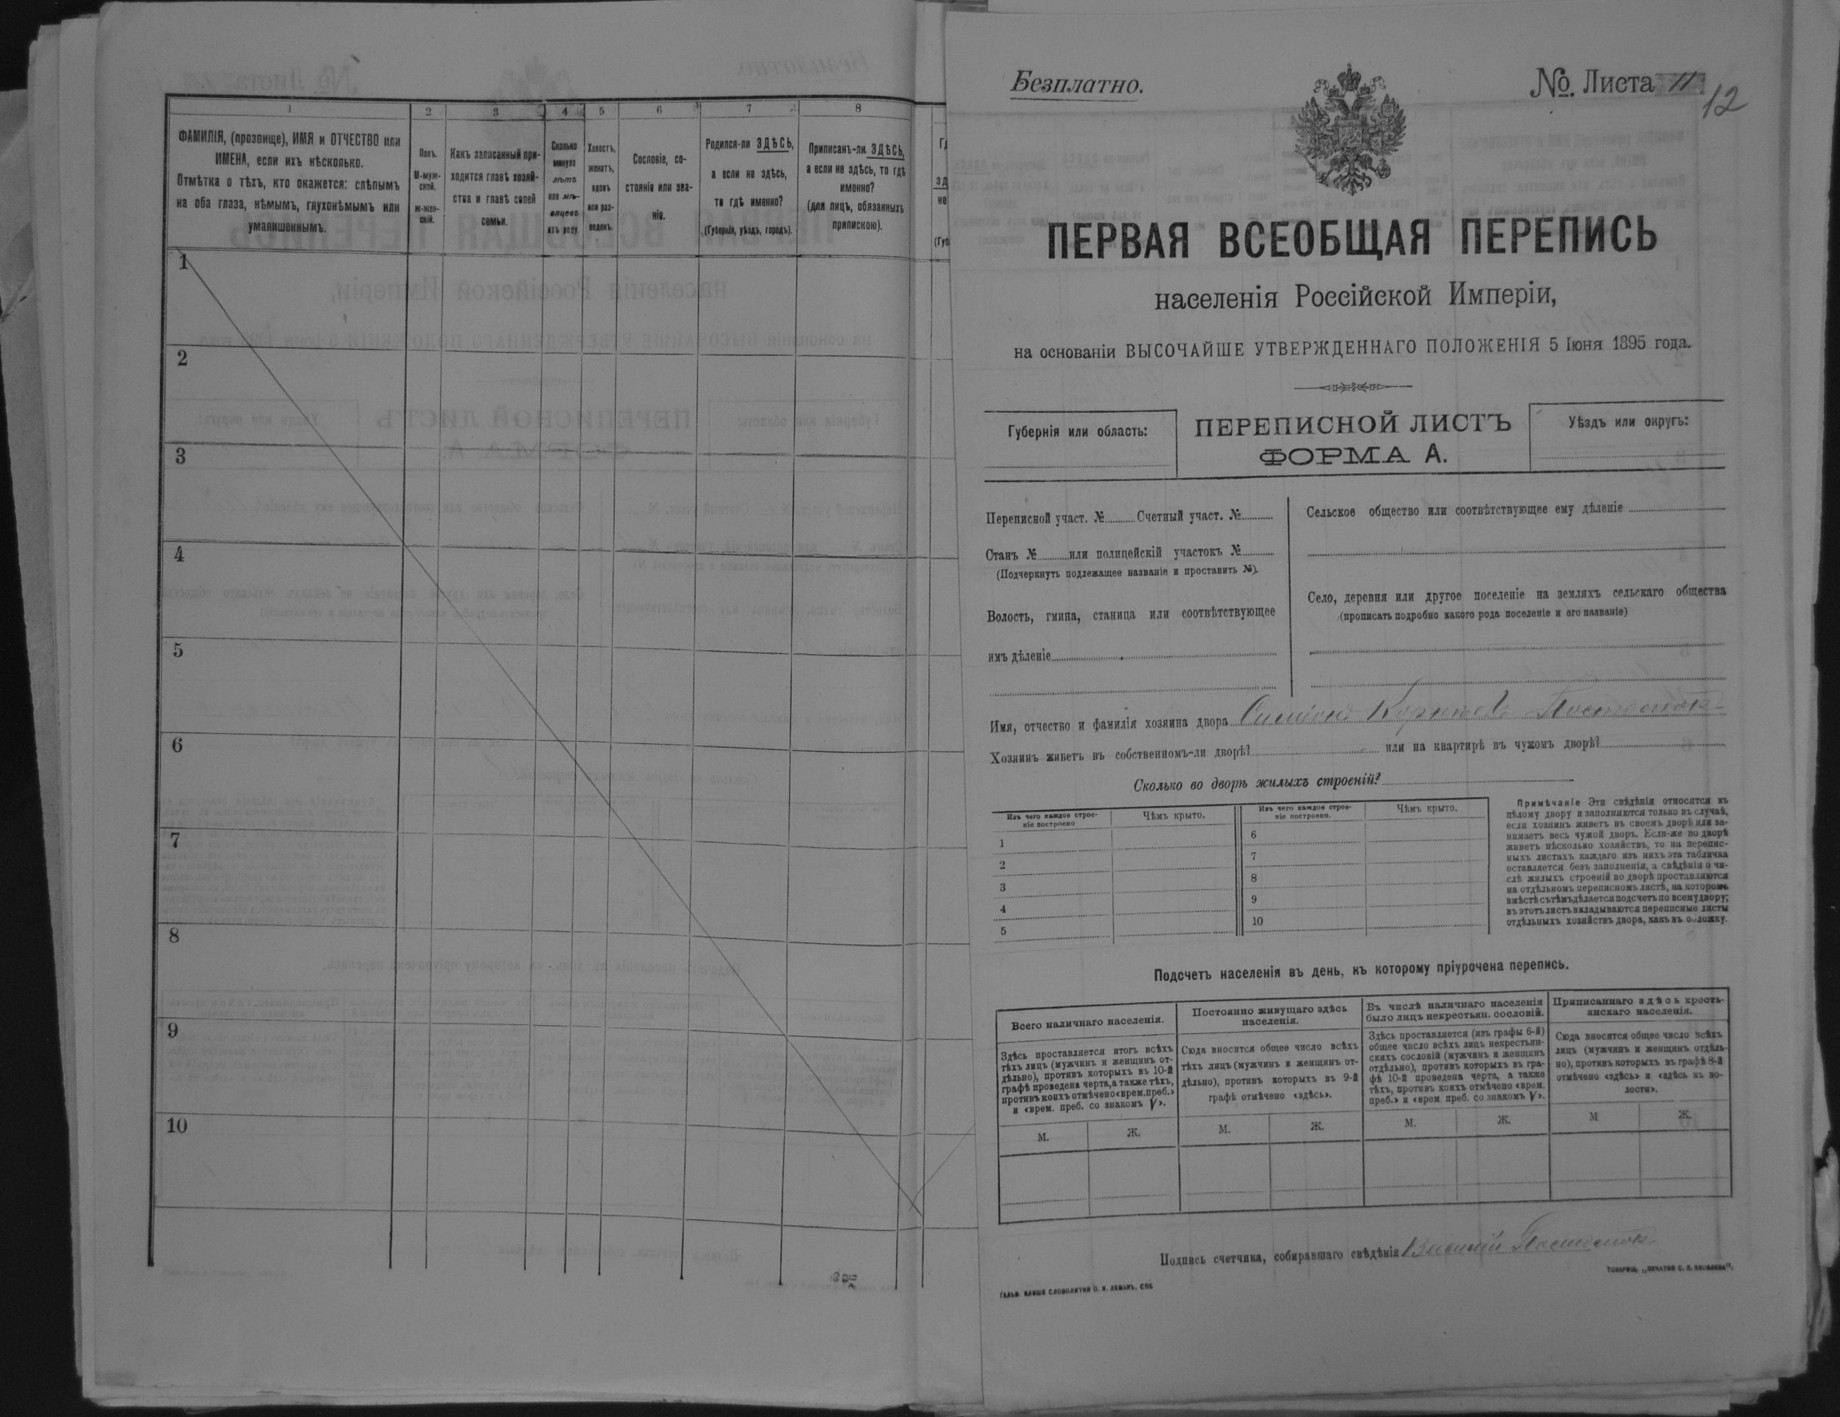 1 2 3 4 5 6 7 8
ФАМИЛІЯ, (прозвище), ИМЯ и ОТЧЕСТВО или
ИМЕНА, если ихъ нѣсколько.
Отмѣтка о тѣхъ, кто окажется: слѣпымъ
на оба глаза, нѣмымъ, глухонѣмымъ или
умалишеннымъ.
Полъ.
М-муж-
ской.
ж-жен-
скій.
Какъ записанный при-
ходится главѣ хозяй-
ства и главѣ своей
семьи.
Сколько
минуло
лѣтъ
или мѣ-
сяцевъ
отъ роду.
Холостъ,
женатъ,
вдовъ
или раз-
веденъ.
Сословіе, со-
стояніе или зва-
ніе.
Родился-ли ЗДѢСЬ,
а если не здѣсь,
то гдѣ именно?
(Губернія, уѣздъ, городъ).
Приписанъ-ли ЗДѢСЬ,
а если не здѣсь, то гдѣ
именно?
(для лицъ, обязанныхъ
припискою).
1
2
3
4
5
6
7
8
9
10
Безплатно.
№. Листа 11
12
ПЕРВАЯ ВСЕОБЩАЯ ПЕРЕПИСЬ
населенія Россійской Имперіи,
на основаніи ВЫСОЧАЙШЕ УТВЕРЖДЕННАГО ПОЛОЖЕНІЯ 5 Іюня 1895 года.
Губернія или область:
ПЕРЕПИСНОЙ ЛИСТЪ
ФОРМА А.
Уѣздъ или округъ:
Переписной участ. № Счетный участ. №
Станъ № или полицейскій участокъ №
(Подчеркнуть подлежащее названіе и проставить №).
Волость, гмина, станица или соотвѣтствующее
имъ дѣленіе
Сельское общество или соотвѣтствующее ему дѣленіе
Село, деревня или другое поселеніе на земляхъ сельскаго общества
(прописать подробно какого рода поселеніе и его названіе)
Имя, отчество и фамилія хозяина двора
Хозяинъ живетъ въ собственномъ-ли дворѣ? или на квартирѣ въ чужомъ дворѣ?
Сколько во дворѣ жилыхъ строеній?
Изъ чего каждое строе-
ніе построено
Чѣмъ крыто.
Изъ чего каждое строе-
ніе построено.
Чѣмъ крыто.
1 6
2 7
3 8
4 9
5 10
Примѣчаніе Эти свѣдѣнія относятся къ
цѣлому двору и заполняются только въ случаѣ,
если хозяинъ живетъ въ своемъ дворѣ или за-
нимаетъ весь чужой дворъ. Если-же во дворѣ
живетъ нѣсколько хозяйствъ, то на перепис-
ныхъ листахъ каждаго изъ нихъ эта табличка
оставляется безъ заполненія, а свѣдѣнія о чи-
слѣ жилыхъ строеній во дворѣ проставляются
на отдѣльномъ переписномъ листѣ, на которомъ
вмѣстѣ съ тѣмъ дѣлается подсчетъ по всему двору;
въ этотъ листъ вкладываются переписные листы
отдѣльныхъ хозяйствъ двора, какъ въ обложку.
Подсчетъ населенія въ день, къ которому пріурочена перепись.
Всего наличнаго населенія.
Здѣсь проставляется итогъ всѣхъ
тѣхъ лицъ (мужчинъ и женщинъ от-
дѣльно), противъ которыхъ въ 10-й
графѣ проведена черта, а также тѣхъ,
противъ коихъ отмѣчено «врем. преб.»
и «врем. преб. со знакомъ V».
М. Ж.
Постоянно живущаго здѣсь
населенія.
Сюда вносится общее число всѣхъ
тѣхъ лицъ (мужчинъ и женщинъ от-
дѣльно), противъ которыхъ въ 9-й
графѣ отмѣчено «здѣсь».
М. Ж.
Въ числѣ наличнаго населенія
было лицъ некрестьян. сословій.
Здѣсь проставляется (изъ графы 6-й)
общее число всѣхъ лицъ некрестьян-
скихъ сословій (мужчинъ и женщинъ
отдѣльно), противъ которыхъ въ гра-
фѣ 10-й проведена черта, а также
тѣхъ, противъ коихъ отмѣчено «врем.
преб.» и «врем преб. со знакомъ V».
М. Ж.
Приписаннаго здѣсь кресть-
янскаго населенія.
Сюда вносится общее число всѣхъ
лицъ (мужчинъ и женщинъ отдѣль-
но), противъ которыхъ въ графѣ 8-й
отмѣчено «здѣсь» и «здѣсь въ во-
лости».
М Ж.
Подпись счетчика, собиравшаго свѣдѣнія
ГАЛЬВ. КЛИШЕ СЛОВОЛИТНИ О. И. ЛЕМАНЪ, СПБ
ТОВАРИЩ. „ПЕЧАТНЯ С. П. ЯКОВЛЕВА“,